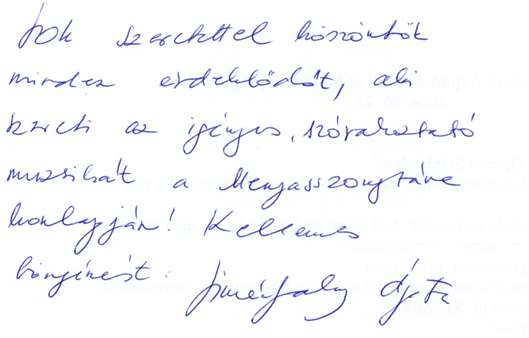 Sok szeretettel köszöntök
minden érdeklődőt, aki
szereti az igényes, szórakoztató
muzsikát a Menyasszonytánc
honlapján! Kellemes
böngészést!